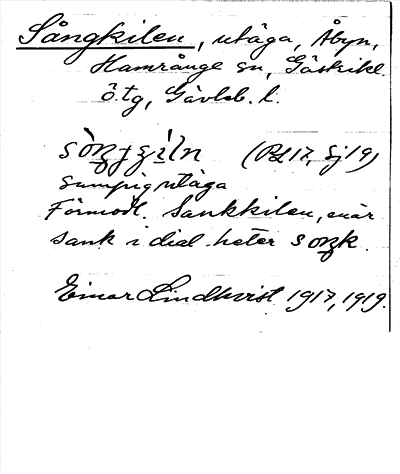 Sångkilen, utäga, Åbyn,
Hamrånge sn, Gästrikl.
ö. tg, Gävleb. l.
(Rd 17, Sj 19)
sumpig utäga
Förmodl. Sankkilen, enär
sank i dial. heter soŋk.
Einar Lindkvist 1917, 1919.